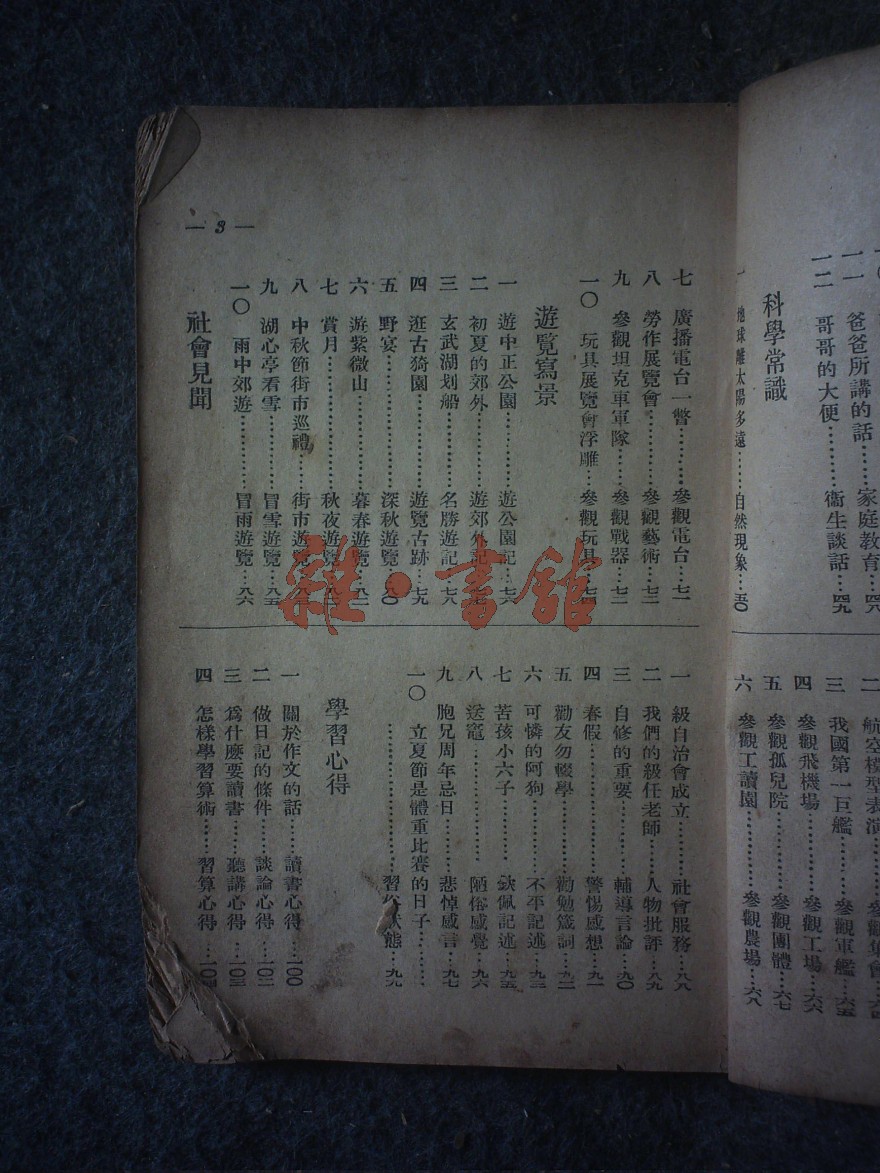 一一 爸爸所講的話……家庭教育…四八
一二 哥哥的大便………衞生談話…四九
科學常識
一 地球離太陽多遠……自然現象…五〇
航空模型表演
三 我國第一巨艦………參觀軍艦…六五
四 參觀飛機場………參觀工場…六六
五 參觀孤兒院………參觀團體…六七
六 參觀工讀園………參觀農場…六八
— 3 —
七 廣播電台一瞥……參觀電台…七一
八 勞作展覽會………參觀藝術…七二
九 參觀坦克車軍隊……參觀戰器…七二
一〇 玩具展覽會浮雕…參觀玩具…
遊覽寫景
一 遊中正公園………遊公園記…七六
二 初夏的郊外………遊郊外記
三 玄武湖划船………名勝遊記…七八
四 逛古猗園………遊覽古跡…七九
五 野宴………深秋遊覽…八〇
六 遊紫微山………暮春遊覽…
七 賞月………秋夜遊覽…
八 中秋節街市巡禮……街市遊覽…
九 湖心亭看雪………冒雪遊覽…八五
一〇 雨中郊遊………冒雨遊覽…八六
社會見聞
一 級自治會成立………社會服務…八八
二 我們的級任老師……人物批評…八九
三 自修的重要………輔導言論…九〇
四 春假………警惕感想…九一
五 勸友勿輟學………勸勉箴詞…九二
六 可憐的阿狗………不平記述…九三
七 苦孩小六子………欽佩記述…九五
八 送竈………陋俗感覺…九六
九 胞兄周年忌日………悲悼感言…九七
一〇 立夏節是體重比賽的日子………
………習俗狀態…九九
學習心得
一 關於作文的話………讀書心得…一〇〇
二 做日記的條件………談論心得…一〇二
三 爲什麽要讀書………聽講心得…一〇三
四 怎樣學習算術………習算心得…一〇四
雜·書館